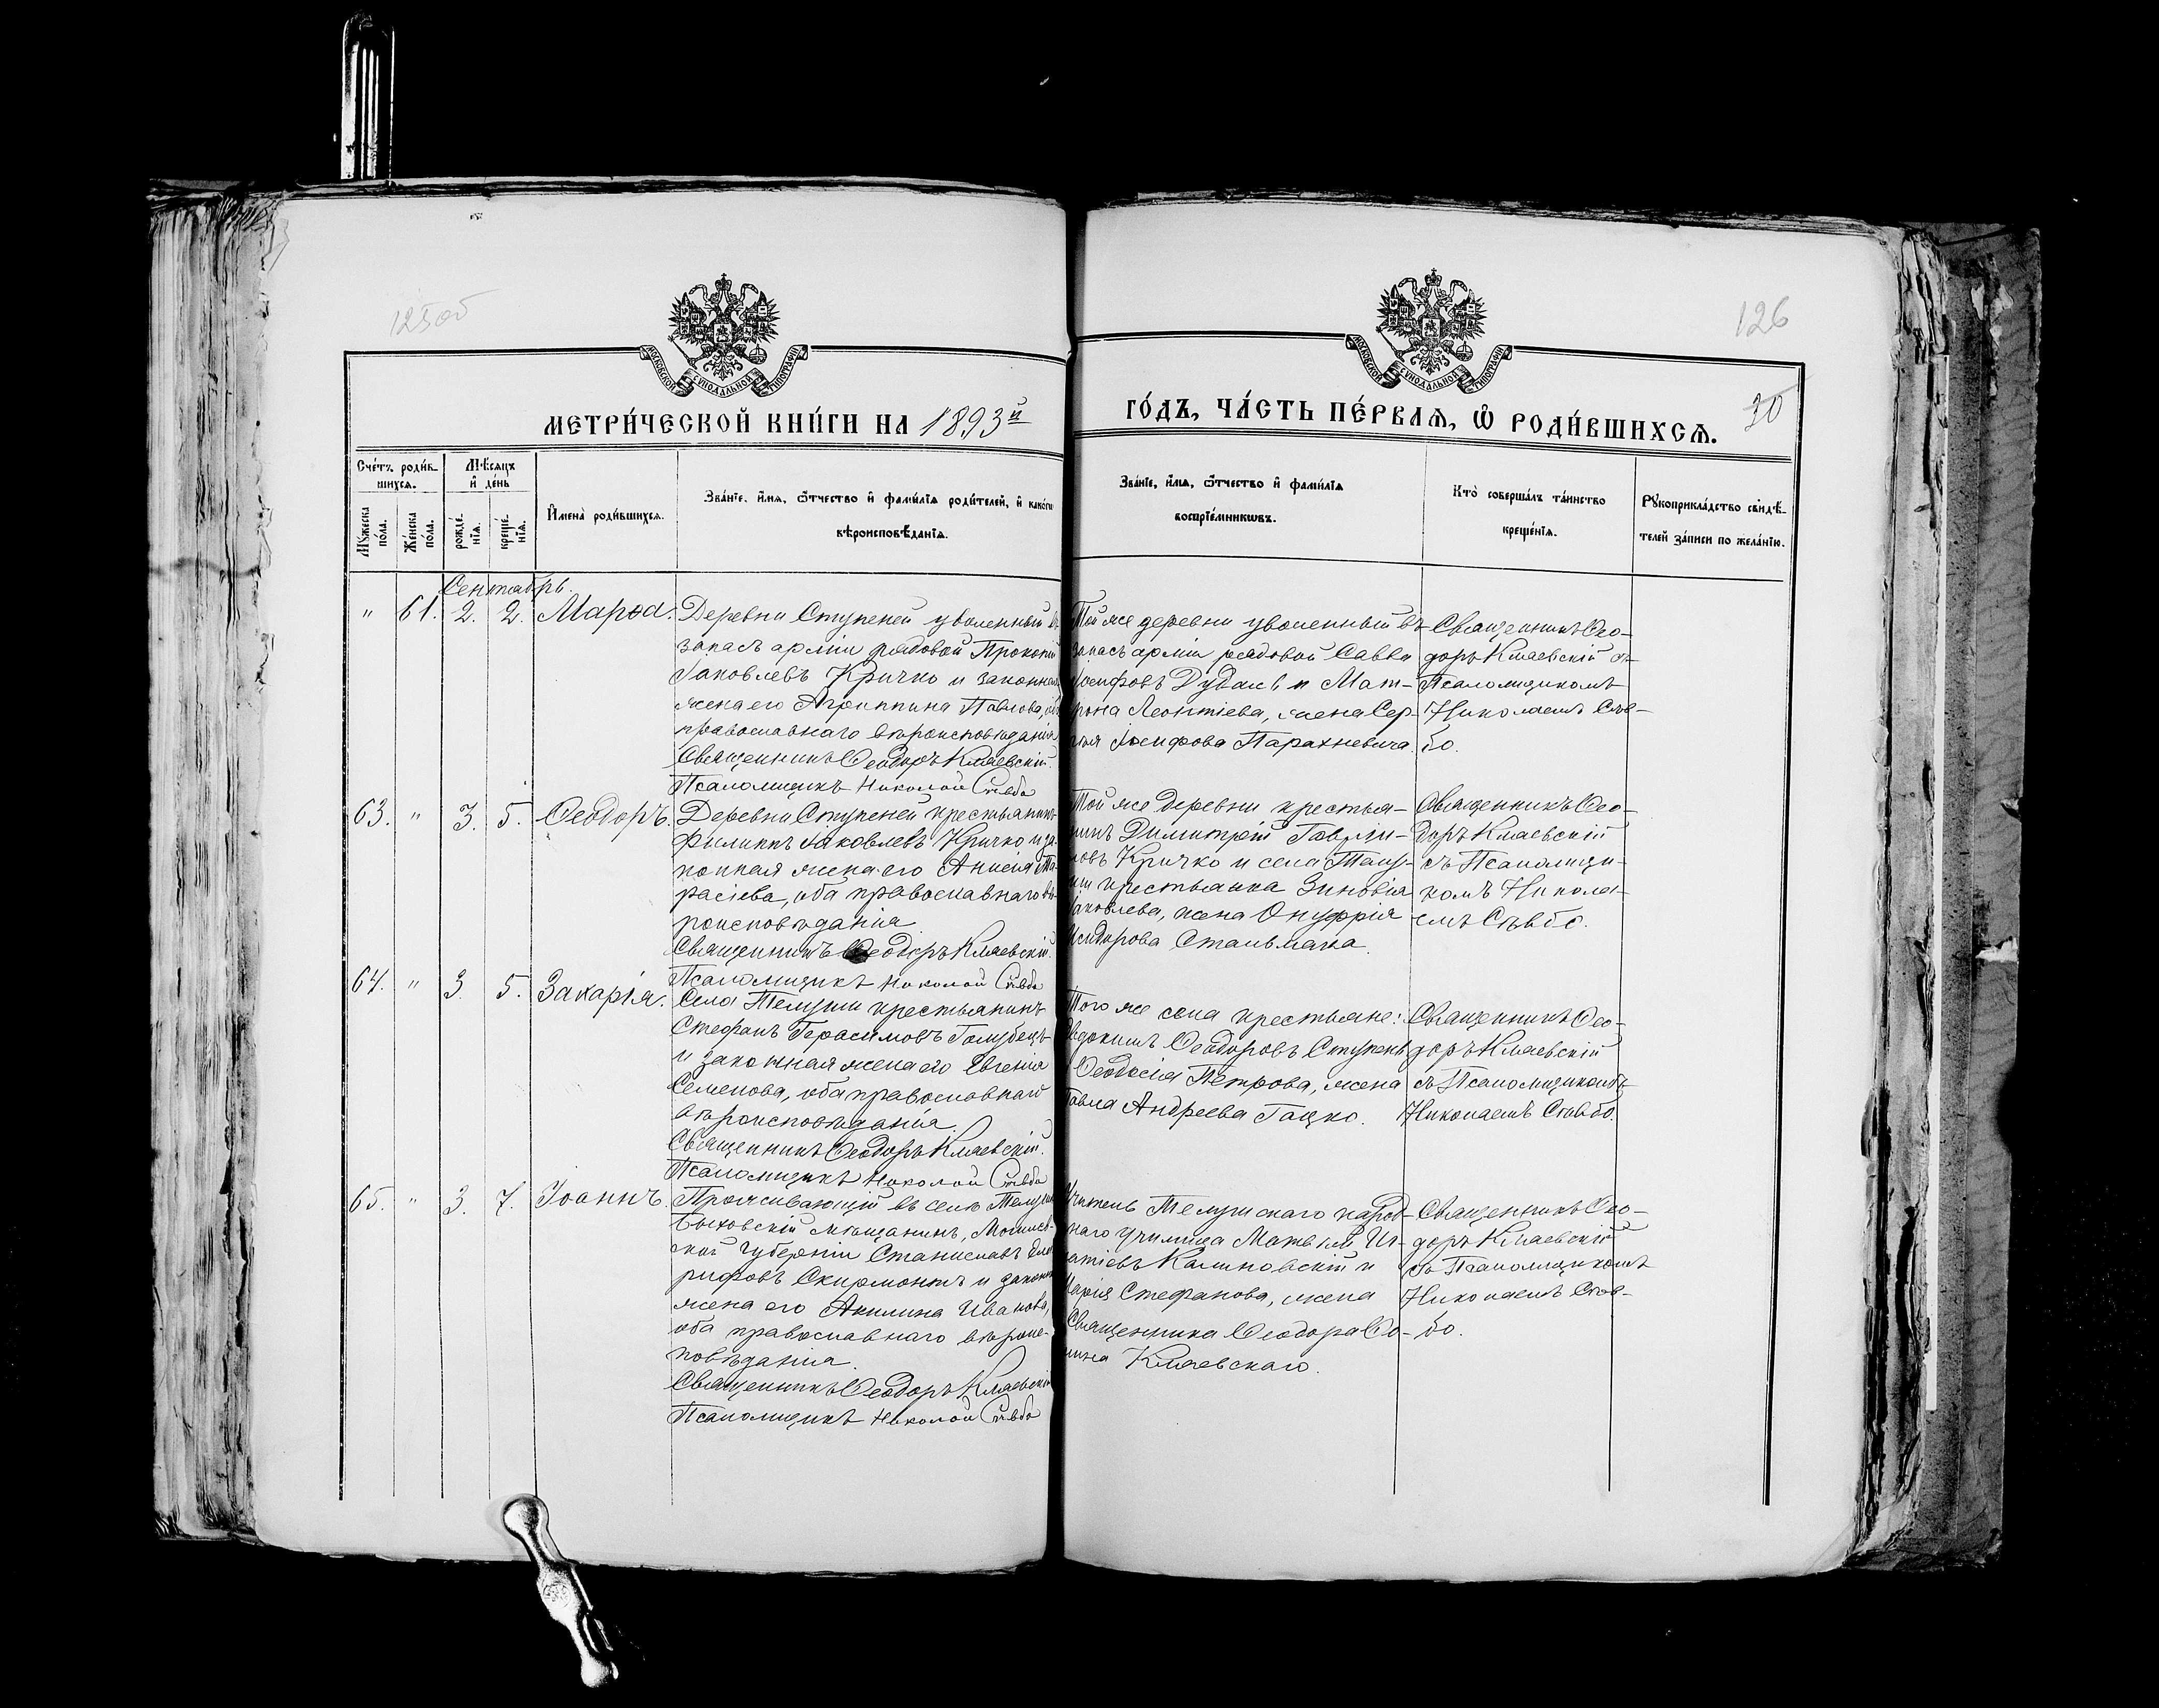 125об
126
МОСКОВСКОЙ СѴНОДАЛЬНОЙ ТИПОГРАФІИ
МОСКОВСКОЙ СѴНОДАЛЬНОЙ ТИПОГРАФІИ
МЕТРИ́ЧЕСКОЙ КНИ́ГИ НА 1893й
ГО́ДЪ, ЧА́СТЬ ПЕ́РВАѦ, Ѡ҆ РОДИ́ВШИХСѦ.
30
Сче́тъ роди́в-
шихсѧ.
Мѣ́сѧцъ
и҆ де́нь
Мꙋ́жеска
по́ла.
Же́нска
по́ла.
рожде́-
нїѧ.
креще́-
нїѧ.
И҆мена̀ роди́вшихсѧ.
Зва́нїе, и҆́мѧ, ѻ҆́тчество и҆ фами́лїѧ роди́телей, и҆ како́гѡ
вѣроисповѣ́данїѧ.
Зва́нїе, и҆́мѧ, ѻ҆́тчество и҆ фами́лїѧ
воспрїе́мникѡвъ.
Кто̀ соверша́лъ та́инство
креще́нїѧ.
Рꙋкоприкла́дство свидѣ́-
телей за́писи по жела́нїю.
Сентябрь.
" 61. 2. 2. Марѳа.
Деревни Ступеней уволенный въ
запасъ арміи рядовой Прокопій
Іаковлевъ Кричко и законная
жена его Агриппина Павлова, оба
православнаго вѣроисповѣданія
Священникъ Ѳеодоръ Кляевскій.
Псаломщикъ Николай Сѣвбо
Той же деревни уволенный въ
запасъ арміи рядовой Савва
Іосифовъ Дубаль и Мат-
рона Леонтіева, жена Сер-
гія Іосифова Парахневича.
Священникъ Ѳео-
доръ Кляевскій съ
Псаломщикомъ
Николаемъ Сѣв-
бо.
63. " 3. 5. Ѳеодоръ.
Деревни Ступеней крестьянинъ
Филиппъ Іаковлевъ Кричко и за-
конная жена его Анисія Та-
расіева, оба православнаго вѣ-
роисповѣданія
Священникъ Ѳеодоръ Кляевскій.
Псаломщикъ Николай Сѣвбо
Той же деревни крестья-
нинъ Димитрій Гаврии-
ловъ Кричко и села Телу-
ши крестьянка Зиновія
Іаковлева, жена Онуфрія
Исидорова Стальмака.
Священникъ Ѳео-
доръ Кляевскій
съ Псаломщи-
комъ Никола-
емъ Сѣвбо.
64. " 3. 5. Захарія.
Села Телуши крестьянинъ
Стефанъ Герасимовъ Голубецъ
и законная жена его Евгенія
Семенова, оба православнаго
вѣроисповѣданія.
Священникъ Ѳеодоръ Кляевскій.
Псаломщикъ Николай Сѣвбо
Того же села крестьяне:
Евдокимъ Ѳеодоровъ Ступень
Ѳеодосія Петрова, жена
Павла Андреева Гацко.
Священникъ Ѳео-
доръ Кляевскій
съ Псаломщикомъ
Николаемъ Сѣвбо.
65. " 3. 7. Іоаннъ.
Проживающій въ селѣ Телушѣ
Быховскій мѣщанинъ, Могилев-
ской губерніи Станиславъ
рифовъ Скирмонтъ и законная
жена его Акилина Иванова,
оба православнаго вѣроис-
повѣданія.
Священникъ Ѳеодоръ Кляевскій
Псаломщикъ Николай Сѣвбо
Учитель Телушскаго народ-
наго училища Матвѣй Иг-
натіевъ Калиновскій и
Марія Стефанова, жена
Священника Ѳеодора Ѳо-
мина Кляевскаго.
Священникъ Ѳео-
доръ Кляевскій
съ Псаломщикомъ
Николаемъ Сѣв-
бо.